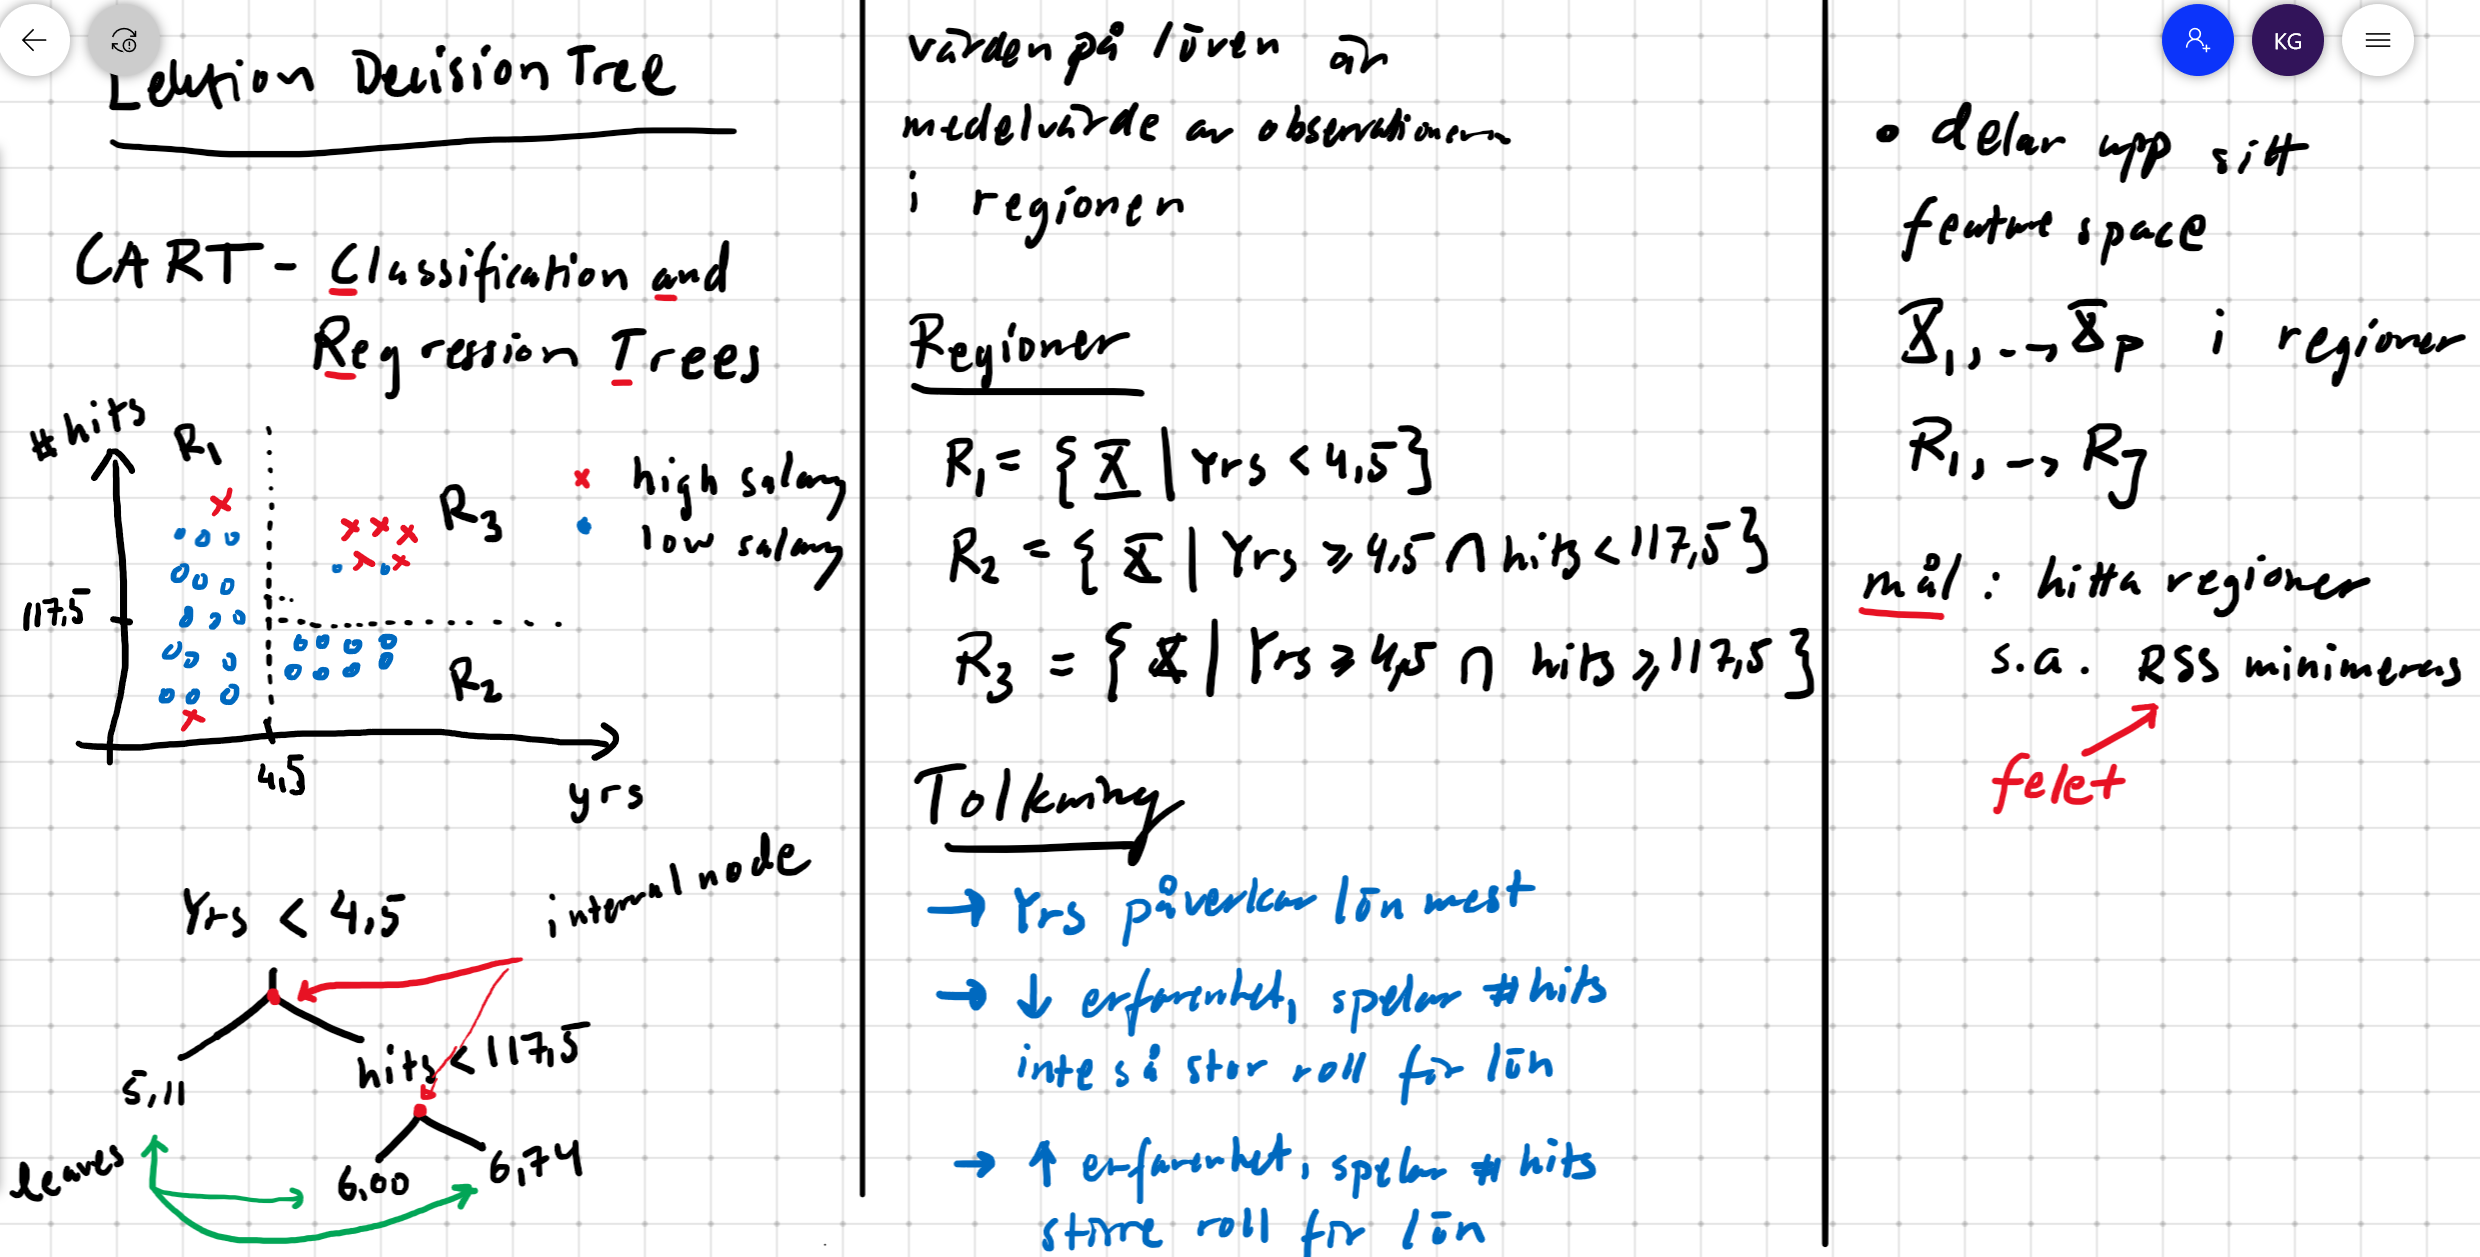 Lektion Decision Tree
CART - Classification and
Regression Trees
# hits
R₁
R₃
x high salary
• low salary
117,5
R₂
4,5
yrs
Yrs < 4,5
internal node
hits < 117,5
5,11
leaves
6,00
6,74
värden på löven är
medelvärde av observationerna
i regionen
Regioner
R₁ = { X | Yrs < 4,5}
R₂ = { X | Yrs ⩾ 4,5 ∩ hits < 117,5}
R₃ = { X | Yrs ⩾ 4,5 ∩ hits ⩾ 117,5 }
Tolkning
→ Yrs påverkar lön mest
→ ↓ erfarenhet, spelar # hits
inte så stor roll för lön
→ ↑ erfarenhet, spelar # hits
större roll för lön
KG
• delar upp sitt
feature space
X₁, --, Xp i regioner
R₁, --, RJ
mål : hitta regioner
s.a. RSS minimeras
felet